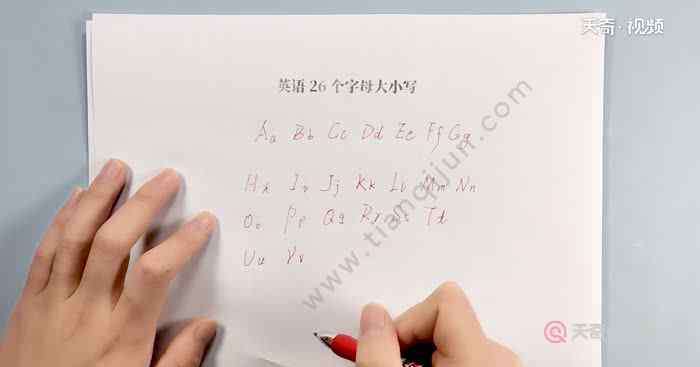 天奇·视频
英语 26 个字母大小写
Aa Bb Cc Dd Ee Ff Gg
Hh Ii Jj Kk Ll Mm Nn
Oo Pp Qq Rr Ss Tt
Uu Vv
www.tianqijun.com
天奇